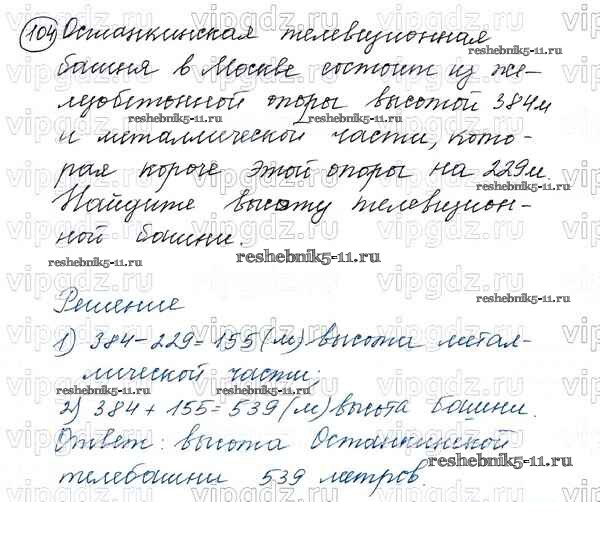 104 Останкинская телевизионная
башня в Москве состоит из же-
лезобетонной опоры высотой 384м
и металлической части, кото-
рая короче этой опоры на 229м.
Найдите высоту телевизион-
ной башни.
Решение
1) 384-229=155(м) высота метал-
лической части;
2) 384+155=539(м) высота башни.
Ответ: высота Останкинской
телебашни 539 метров.
vipgdz.ru
reshebnik5-11.ru